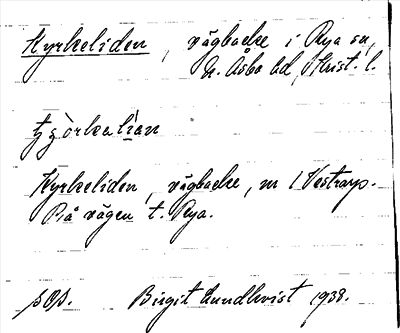 Kyrkeliden, vägbacke i Rya sn,
N. Åsbo hd, Krist. l.
Kyrkeliden, vägbacke, nr 1 Vestrarp.
På vägen t. Rya.
sOp. Birgit Lundkvist 1938.